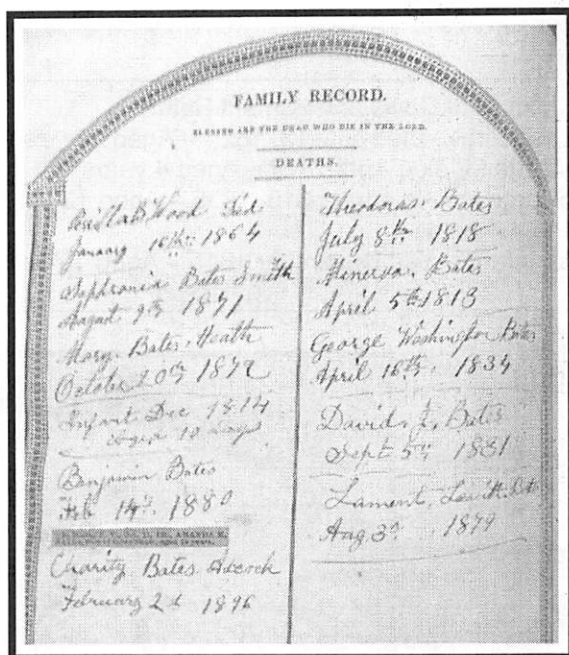 FAMILY RECORD.
BLESSED ARE THE DEAD WHO DIE IN THE LORD.
DEATHS.
Wood Died
January 16th 1864
Sophronia Bates Smith
August 9th 1871
Mary Bates Heath
October 20th 1879
Infant Dec 1814
aged 10 days
Benjamin Bates
Feb 14th 1880
AMANDA M.
Charity Bates Adcock
February 2d 1896
Theodorus Bates
July 8th 1818
Minerva Bates
April 5th 1813
George Washington Bates
April 16th 1834
David J. Bates
Sept 5th 1831
Lament Bates
Aug 3d 1879